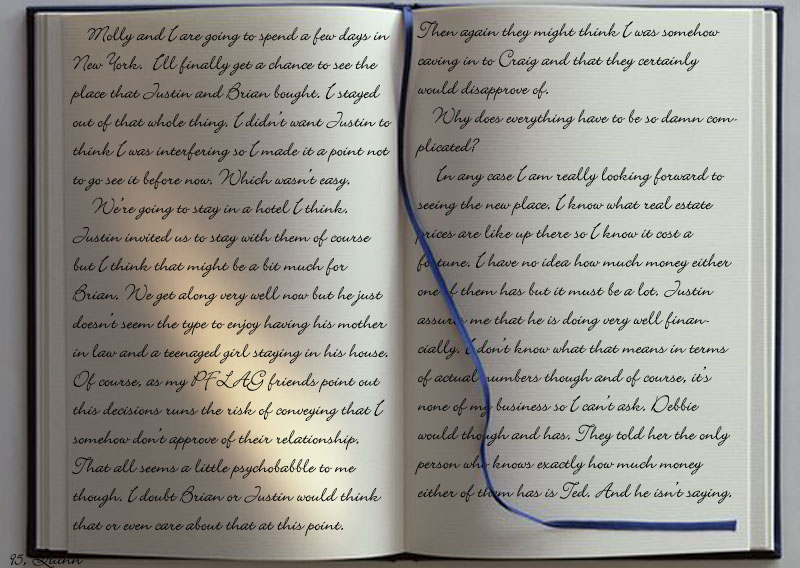 Molly and I are going to spend a few days in
New York. I'll finally get a chance to see the
place that Justin and Brian bought. I stayed
out of that whole thing. I didn't want Justin to
think I was interfering so I made it a point not
to go see it before now. Which wasn't easy.
We're going to stay in a hotel I think.
Justin invited us to stay with them of course
but I think that might be a bit much for
Brian. We get along very well now but he just
doesn't seem the type to enjoy having his mother
in law and a teenaged girl staying in his house.
Of course, as my PFLAG friends point out
this decisions runs the risk of conveying that I
somehow don't approve of their relationship.
That all seems a little psychobabble to me
though. I doubt Brian or Justin would think
that or even care about that at this point.
Then again they might think I was somehow
caving in to Craig and that they certainly
would disapprove of.
Why does everything have to be so damn com-
plicated?
In any case I am really looking forward to
seeing the new place. I know what real estate
prices are like up there so I know it cost a
fortune. I have no idea how much money either
one of them has but it must be a lot. Justin
assures me that he is doing very well finan-
cially. I don't know what that means in terms
of actual numbers though and of course, it's
none of my business so I can't ask. Debbie
would though and has. They told her the only
person who knows exactly how much money
either of them has is Ted. And he isn't saying.
95, Quinn